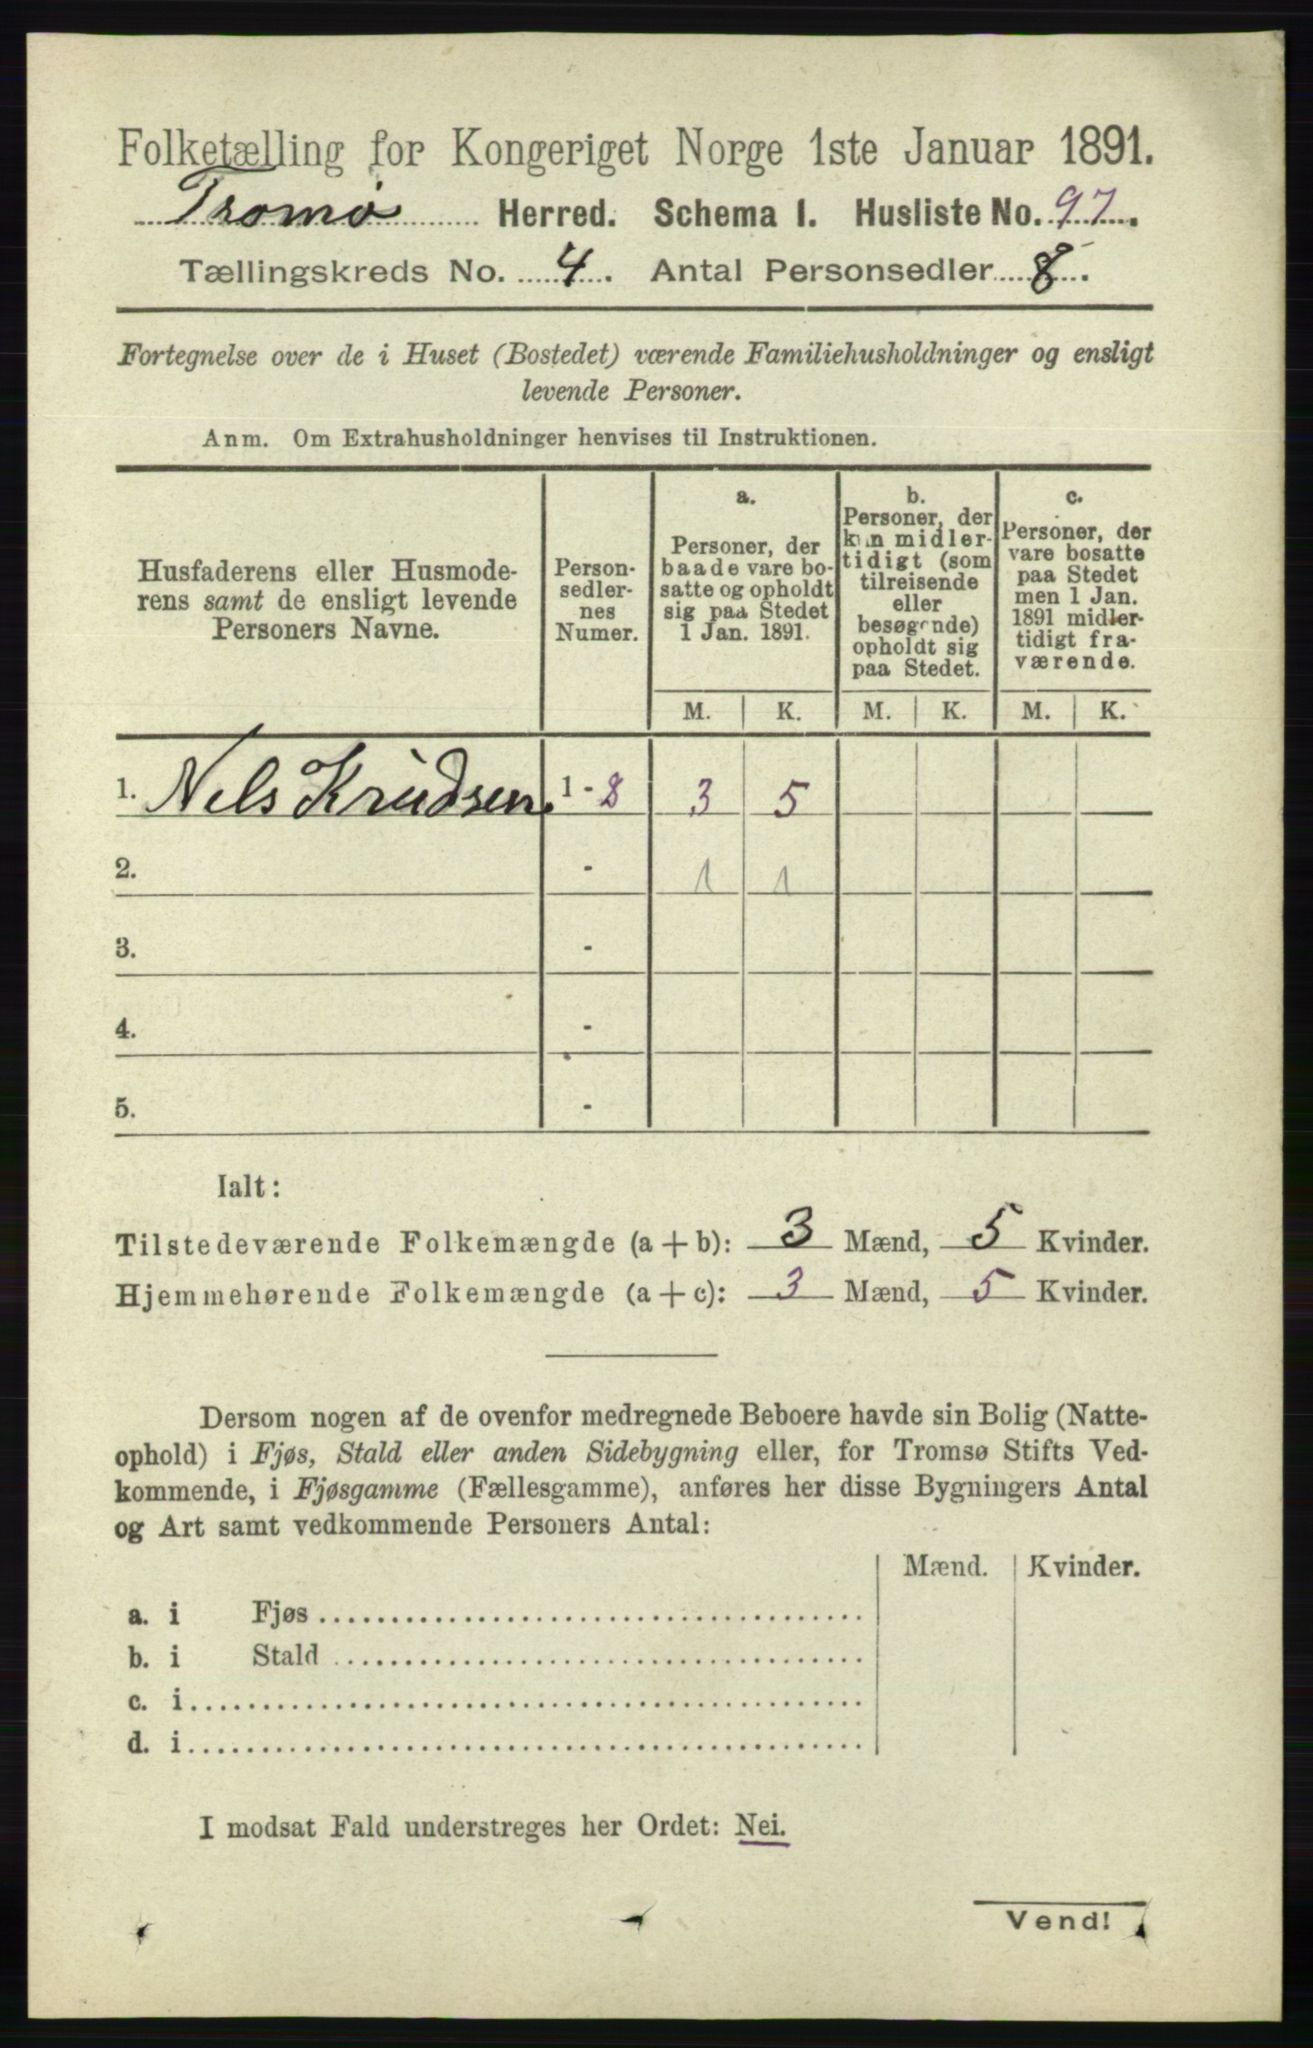 Folketælling for Kongeriget Norge 1ste Januar 1891.
Tromø Herred. Schema I. Husliste No. 97.
Tællingskreds No. 4. Antal Personsedler 8.
Fortegnelse over de i Huset (Bostedet) værende Familiehusholdninger og ensligt
levende Personer.
Anm. Om Extrahusholdninger henvises til Instruktionen.
Husfaderens eller Husmode-
rens samt de ensligt levende
Personers Navne.
Person-
sedler-
nes
Numer.
a.
Personer, der
baade vare bo-
satte og opholdt
sig paa Stedet
1 Jan. 1891.
b.
Personer, der
kun midler-
tidigt (som
tilreisende
eller
besøgende)
opholdt sig
paa Stedet.
c.
Personer, der
vare bosatte
paa Stedet
men 1 Jan.
1891 midler-
tidigt fra-
værende.
M. K. M. K. M. K.
1. Nels Knudsen 1 - 8 3 5
2. - 1 1
3. -
4. -
5. -
Ialt:
Tilstedeværende Folkemængde (a + b): 3 Mænd, 5 Kvinder.
Hjemmehørende Folkemængde (a + c): 3 Mænd, 5 Kvinder.
Dersom nogen af de ovenfor medregnede Beboere havde sin Bolig (Natte-
ophold) i Fjøs, Stald eller anden Sidebygning eller, for Tromsø Stifts Ved-
kommende, i Fjøsgamme (Fællesgamme), anføres her disse Bygningers Antal
og Art samt vedkommende Personers Antal:
Mænd. Kvinder.
a. i Fjøs
b. i Stald
c. i
d. i
I modsat Fald understreges her Ordet: Nei.
Vend!